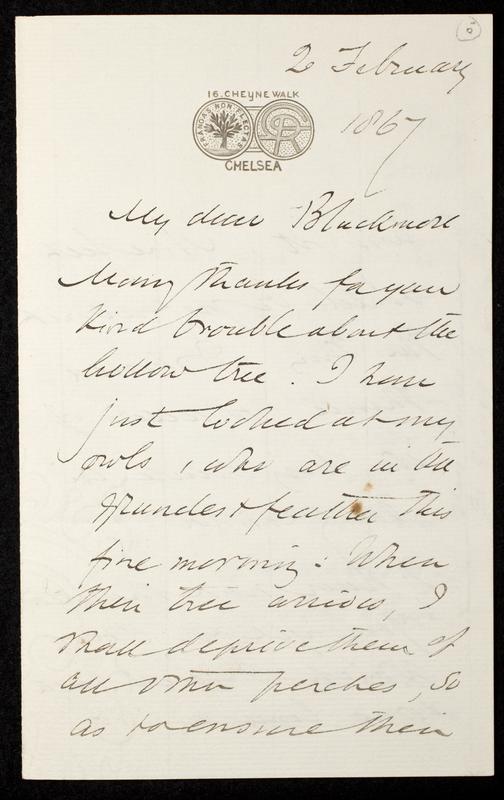 2 February
16. CHEYNE WALK
1867
FRANGAS NON FLECTAS
CHELSEA
My dear Blackmore
Many thanks for your
kind trouble about the
hollow tree. I have
just looked at my
owls, who are in the
grandest feather this
fine morning: When
their tree arrives, I
shall deprive them of
all other perches, so
as to ensure their